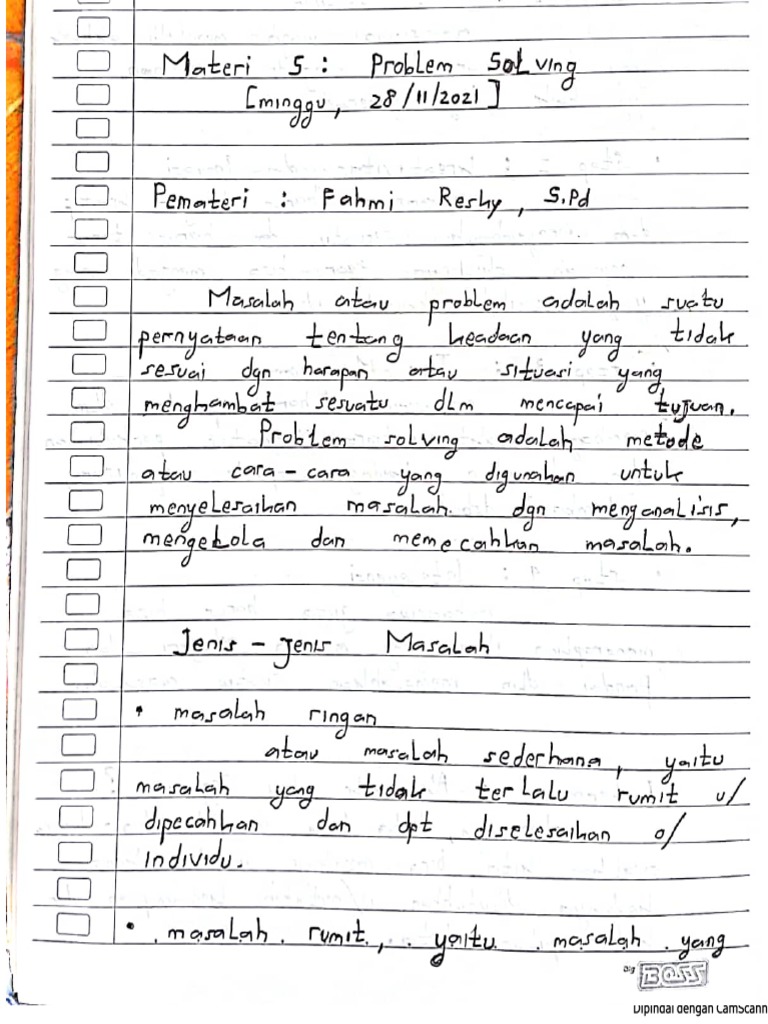 Materi 5 : Problem Solving
[minggu, 28/11/2021]
Pemateri : Fahmi Reshy, S.Pd
Masalah atau problem adalah suatu
pernyataan tentang keadaan yang tidak
sesuai dgn harapan atau situasi yang
menghambat sesuatu dlm mencapai tujuan.
Problem solving adalah metode
atau cara-cara yang digunakan untuk
menyelesaikan masalah dgn menganalisis,
mengelola dan memecahkan masalah.
Jenis-jenis Masalah
• masalah ringan
atau masalah sederhana, yaitu
masalah yang tidak terlalu rumit u/
dipecahkan dan dpt diselesaikan o/
individu.
• masalah rumit, yaitu masalah yang
BOSS
Dipindai dengan CamScann